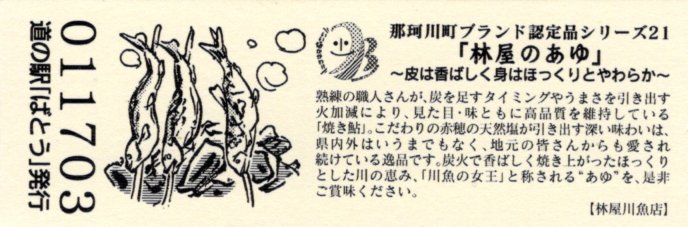 011703
道の駅「ばとう」発行
那珂川町ブランド認定品シリーズ21
「林屋のあゆ」
〜皮は香ばしく身はほっくりとやわらか〜
熟練の職人さんが、炭を足すタイミングやうまさを引き出す
火加減により、見た目・味ともに高品質を維持している
「焼き鮎」。こだわりの赤穂の天然塩が引き出す深い味わいは、
県内外はいうまでもなく、地元の皆さんからも愛され
続けている逸品です。炭火で香ばしく焼き上がったほっくり
とした川の恵み、「川魚の女王」と称される“あゆ”を、是非
ご賞味ください。
【林屋川魚店】